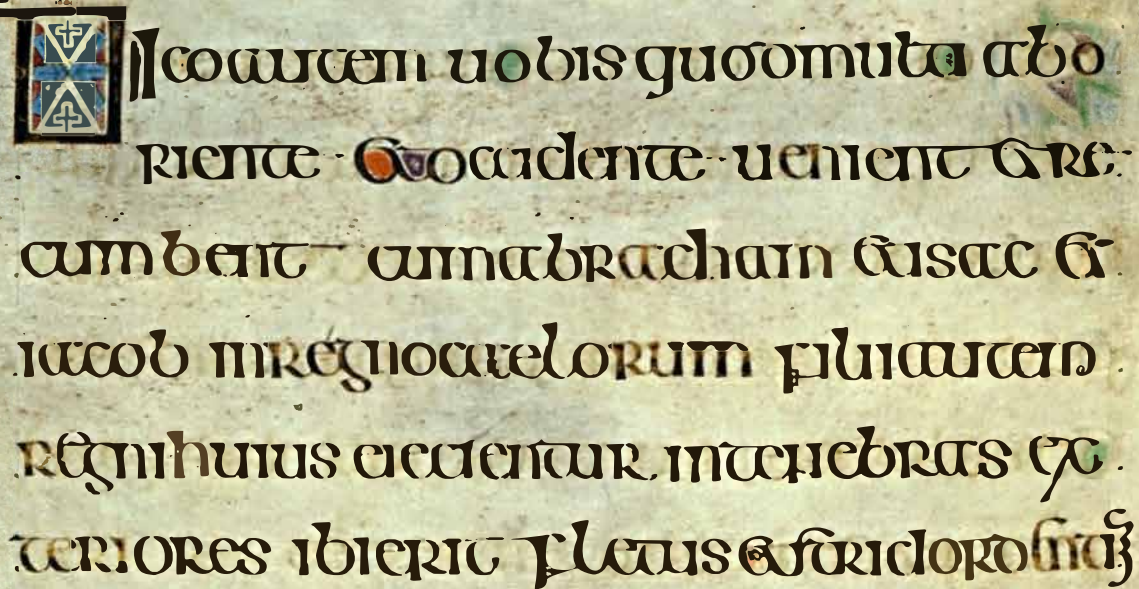 Dico autem uobis quod multi abo
riente et occidente uenient et re
cumbent cum abracham et isac et
iacob in regno caelorum filii autem
regni huius eicientur in tenebras ex
teriores ibi erit fletus et stridor